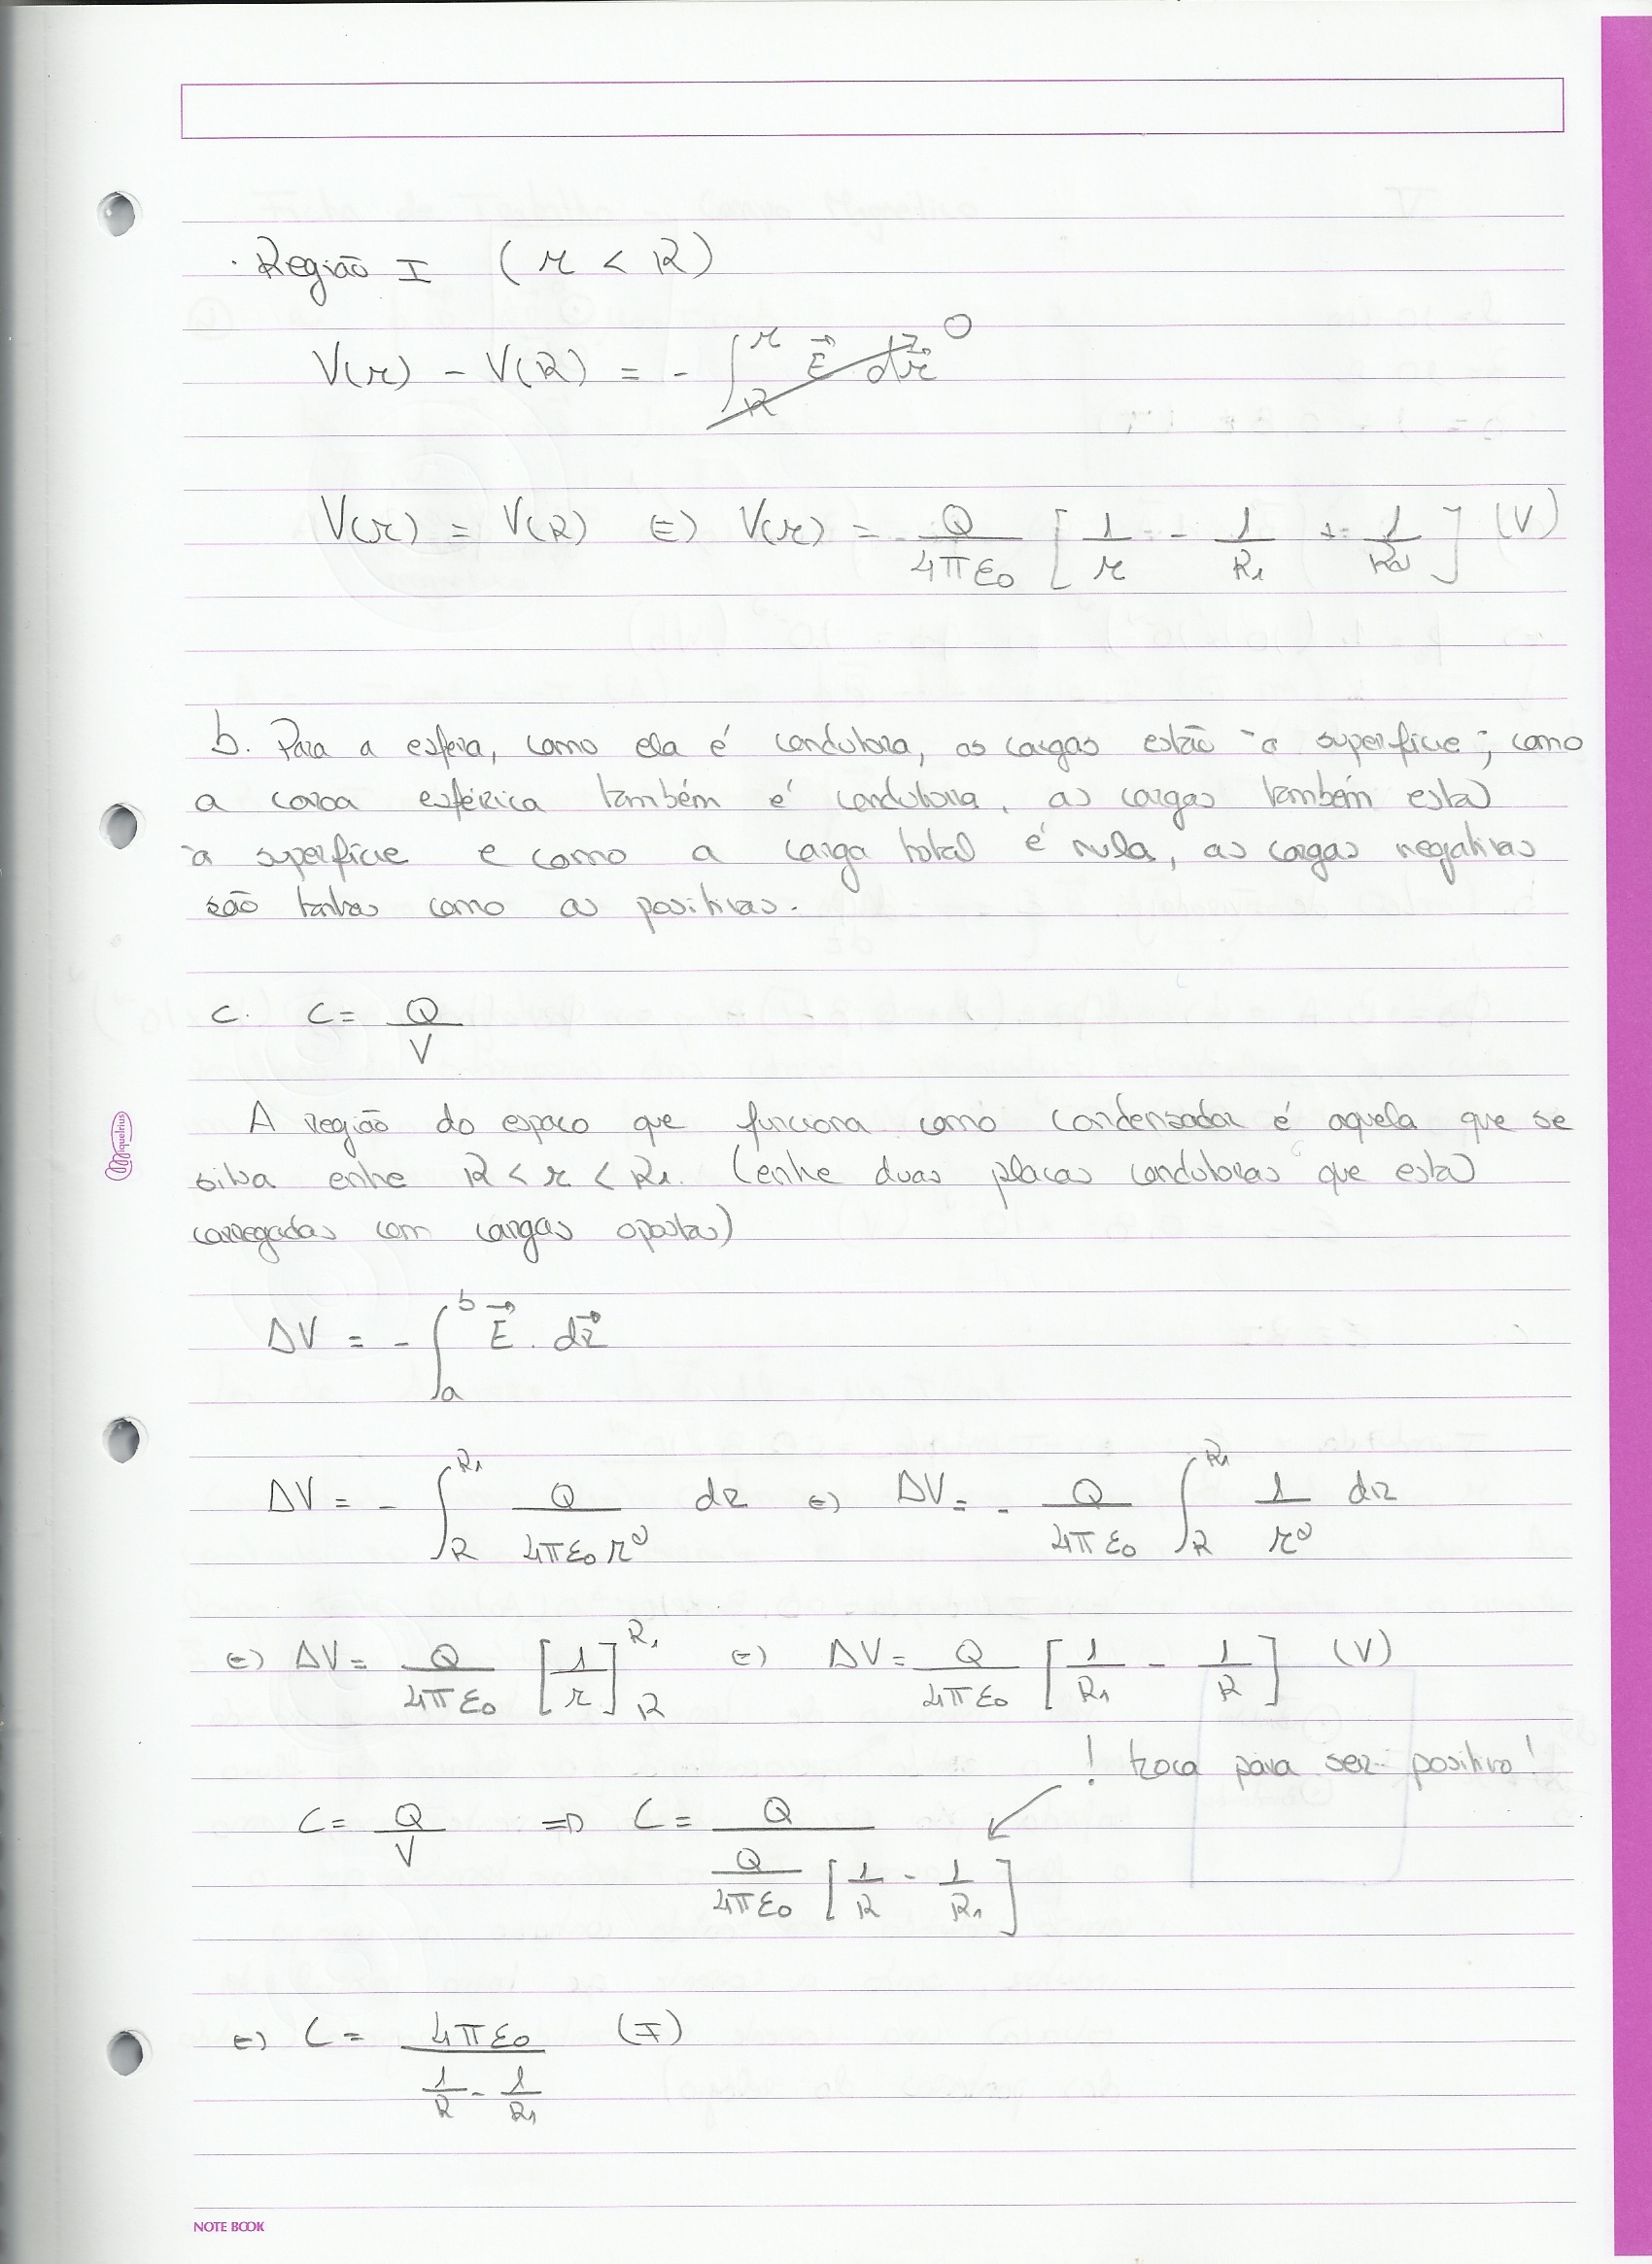 · Região I ( r < R )
V(r) - V(R) = - ∫_R^r E⃗ dr⃗ 0
V(r) = V(R) ⇔ V(r) = Q/4πε₀ [ 1/r - 1/R₁ + 1/R₂ ] (V)
b. Para a esfera, como ela é condutora, as cargas estão à superfície; como
a coroa esférica também é condutora, as cargas também estão
à superfície e como a carga total é nula, as cargas negativas
são tantas como as positivas.
c. C = Q/V
A região do espaço que funciona como condensador é aquela que se
situa entre R < r < R₁. (entre duas placas condutoras que estão
carregadas com cargas opostas)
ΔV = - ∫_a^b E⃗ . dr⃗
ΔV = - ∫_R^R₁ Q/4πε₀r² dr ⇔ ΔV = - Q/4πε₀ ∫_R^R₁ 1/r² dr
⇔ ΔV = Q/4πε₀ [ 1/r ]_R^R₁ ⇔ ΔV = Q/4πε₀ [ 1/R₁ - 1/R ] (V)
! troca para ser positivo!
C = Q/V ⇒ C = Q / Q/4πε₀ [ 1/R - 1/R₁ ]
⇔ C = 4πε₀ / 1/R - 1/R₁ (F)
miquelrius
NOTE BOOK